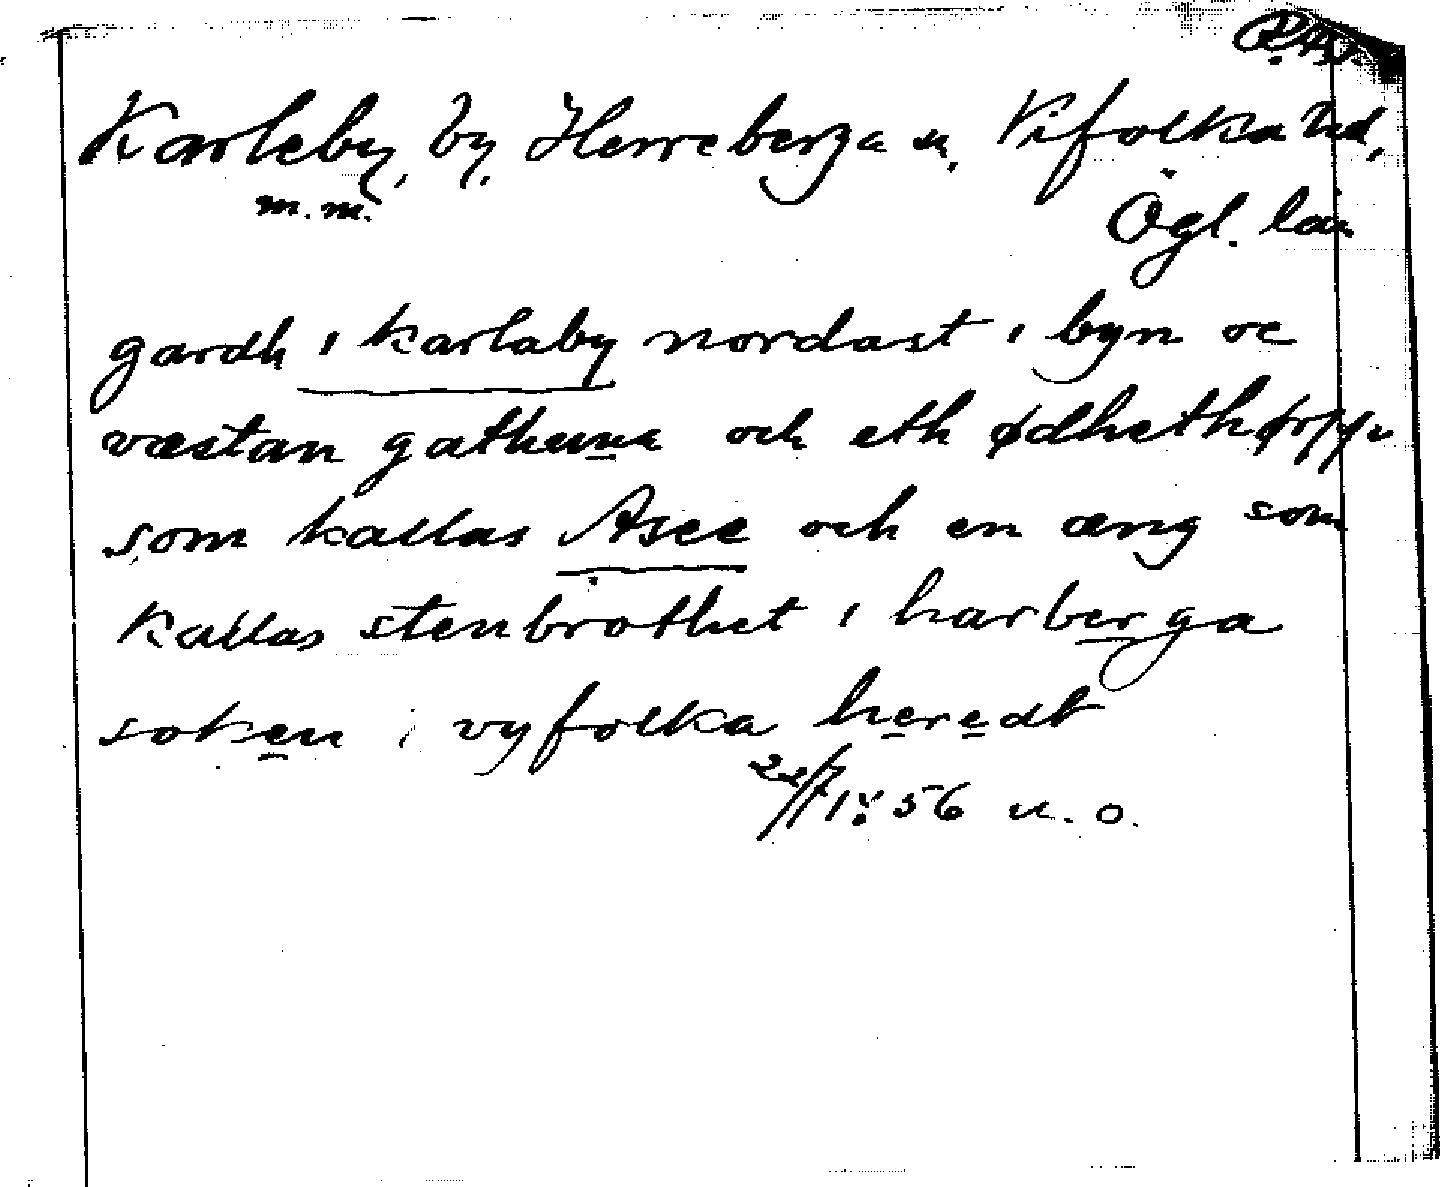 Karleby, by, Herreberga sn, Vifolka hd,
m.m.
Ögl. län
gardh i karlaby nordast i byn oc
væstan gathuna och eth ødhethorp
som kallas Asee och en æng som
kallas stenbrothet i harberga
soken i vyfolka heredt
1456 u. o.